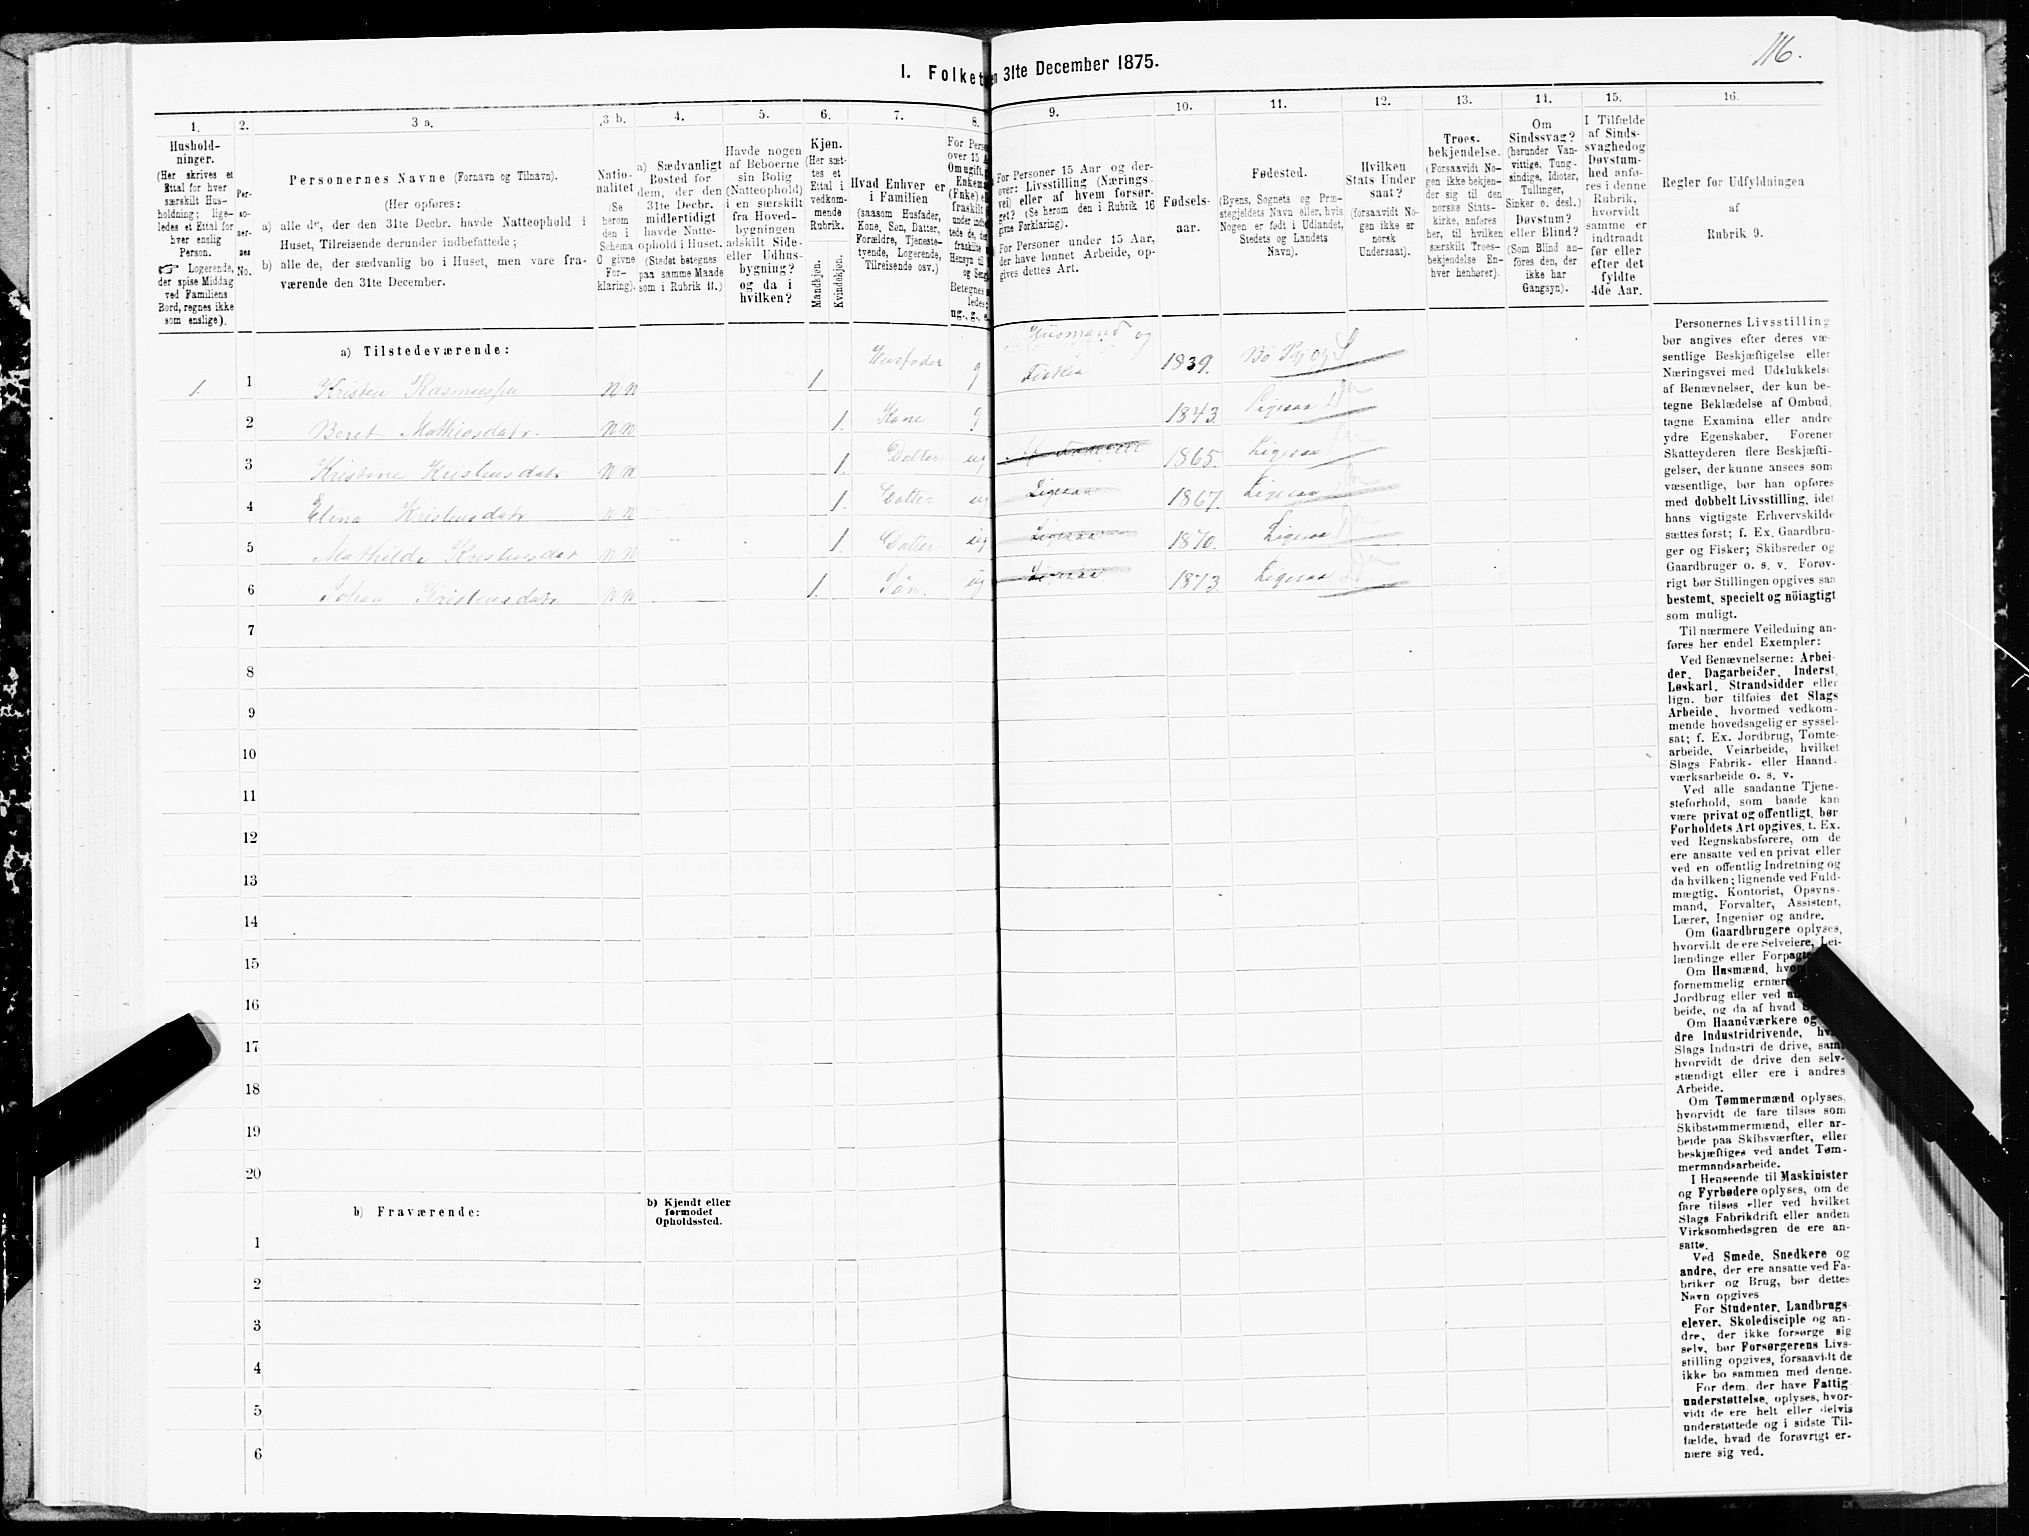 116.
I. Folket
en 31te December 1875.
1.
2.
3 a.
3 b.
4.
5.
6.
7.
8.
9.
10.
11.
12.
13.
14.
15.
16.
Hushold-
ninger.
(Her skrives et
Ettal for hver
særskilt Hus-
holdning; lige-
ledes et Ettal for
hver enslig
Person.
☞ Logerende,
der spise Middag
ved Familiens
Bord, regnes ikke
som enslige).
Per-
so-
ner-
nes
No.
Personernes Navne (Fornavn og Tilnavn).
(Her opføres:
a) alle de, der den 31te Decbr. havde Natteophold i
Huset, Tilreisende derunder indbefattede;
b) alle de, der sædvanlig bo i Huset, men vare fra-
værende den 31te December.
Natio-
nalitet
(Se
herom
den i
Schema
O givne
For-
klaring).
a) Sædvanligt
Bosted for
dem, der den
31te Decbr.
midlertidigt
havde Natte-
ophold i Huset.
(Stedet betegnes
paa samme Maade
som i Rubrik 11.)
Havde nogen
af Beboerne
sin Bolig
(Natteophold)
i en særskilt
fra Hoved-
bygningen
adskilt Side-
eller Udhus-
bygning?
og da i
hvilken?
Kjøn.
(Her sæt-
tes et
Ettal i
vedkom-
mende
Rubrik.
Mandkjøn.
Kvindekjøn.
Hvad Enhver er
i Familien
(saasom Husfader,
Kone, Søn, Datter,
Forældre, Tjeneste-
tyende, Logerende,
Tilreisende osv.)
For Pers
over 15 A
Om ugift,
Enkema
(Enke) e
fraskilt
under indbe
tede de, de
fraskilte
Hensyn til
og Seng
Betegnes
ledes:
ug., g., e
For Personer 15 Aar og der-
over: Livsstilling (Nærings-
vei) eller af hvem forsør-
get? (Se herom den i Rubrik 16
givne Forklaring).
For Personer under 15 Aar,
der have lønnet Arbeide, op-
gives dettes Art.
Fødsels-
aar.
Fødested.
(Byens, Sognets og Præ-
stegjeldets Navn eller, hvis
Nogen er født i Udlandet,
Stedets og Landets
Navn).
Hvilken
Stats Under
saat?
(forsaavidt No-
gen ikke er
norsk
Undersaat).
Troes-
bekjendelse.
(Forsaavidt No-
gen ikke bekjen-
der sig til den
norske Stats-
kirke, anføres
her, til hvilken
særskilt Troes-
bekjendelse En-
hver henhører).
Om
Sindssvag?
(herunder Van-
vittige, Tung-
sindige, Idioter,
Tullinger,
Sinker o. desl.)
Døvstum?
eller Blind?
(Som Blind an-
føres den, der
ikke har
Gangsyn).
I Tilfælde
af Sinds-
svaghedog
Døvstum-
hed anfø-
res i denne
Rubrik,
hvorvidt
samme er
indtraadt
før eller
efter det
fyldte
4de Aar.
Regler for Udfyldningen
af
Rubrik 9.
a) Tilstedeværende:
1. 1 Kristen Rasmussen n n 1. Husfader g Husmand og Fisker 1839. Bø
2 Beret Mathiasdatr. n n 1. Kone g 1843. Ligesaa
3 Kristine Kristensdatr n n 1. Datter ug 1865. Ligesaa
4 Elina Kristensdatr n n 1. Datter ug Ligesaa 1867. Ligesaa
5 Mathilde Kristensdat n n 1. Datter ug Ligesaa 1870. Ligesaa
6 Johan Kristensdatr n n 1. Søn. ug Ligesaa 1873. Ligesaa
7
8
9
10
11
12
13
14
15
16
17
18
19
20
b) Fraværende:
b) Kjendt eller
formodet
Opholdssted.
1
2
3
4
5
6
Personernes Livsstilling
bør angives efter deres væ-
sentlige Beskjæftigelse eller
Næringsvei med Udelukkelse
af Benævnelser, der kun be-
tegne Beklædelse af Ombud,
tagne Examina eller andre
ydre Egenskaber. Forener
Skatteyderen flere Beskjæfti-
gelser, der kunne ansees som
væsentlige, bør han opføres
med dobbelt Livsstilling, idet
hans vigtigste Erhvervskilde
sættes først; f. Ex. Gaardbru-
ger og Fisker; Skibsreder og
Gaardbruger o. s. v. Forøv-
rigt bør Stillingen opgives saa
bestemt, specielt og nöiagtigt
som muligt.
Til nærmere Veiledning an-
føres her endel Exempler:
Ved Benævnelserne: Arbei-
der, Dagarbeider, Inderst,
Løskarl, Strandsidder eller
lign. bør tilføies det Slags
Arbeide, hvormed vedkom-
mende hovedsagelig er syssel-
sat; f. Ex. Jordbrug, Tomte-
arbeide, Veiarbeide, hvilket
Slags Fabrik- eller Haand-
værksarbeide o. s. v.
Ved alle saadanne Tjene-
steforhold, som baade kan
være privat og offentligt, bør
Forholdets Art opgives, t. Ex.
ved Regnskabsførere, om de
ere ansatte ved en privat eller
ved en offentlig Indretning og
da hvilken; lignende ved Fuld-
mægtig, Kontorist, Opsyns-
mand, Forvalter, Assistent,
Lærer, Ingeniør og andre.
Om Gaardbrugere oplyses,
hvorvidt de ere Selveiere, Lei-
lændinge eller Forpagte
Om Husmænd, hvor
fornemmelig ernær
Jordbrug eller ved
beide, og da af hvad
Om Haandværkere og
dre Industridrivende,
Slags Industri de drive, samt
hvorvidt de drive den selv-
stændigt eller ere i andres
Arbeide.
Om Tømmermænd oplyses,
hvorvidt de fare tilsøs som
Skibstømmermænd, eller ar-
beide paa Skibsværfter, eller
beskjæftiges ved andet Tøm-
mermandsarbeide.
I Henseende til Maskinister
og Fyrbødere oplyses, om de
fare tilsøs eller ved hvilket
Slags Fabrikdrift eller anden
Virksomhedsgren de ere an-
satte.
Ved Smede, Snedkere og
andre, der ere ansatte ved Fa-
briker og Brug, bør dettes
Navn opgives
For Studenter, Landbrugs-
elever, Skoledisciple og an-
dre, der ikke forsørge sig
selv, bør Forsørgerens Livs-
stilling opgives, forsaavidt de
ikke bo sammen med denne.
For dem, der have Fattig-
understøttelse, oplyses, hvor-
vidt de ere helt eller delvis
understøttede og i sidste Til-
fælde, hvad de forøvrigt er-
nære sig ved.